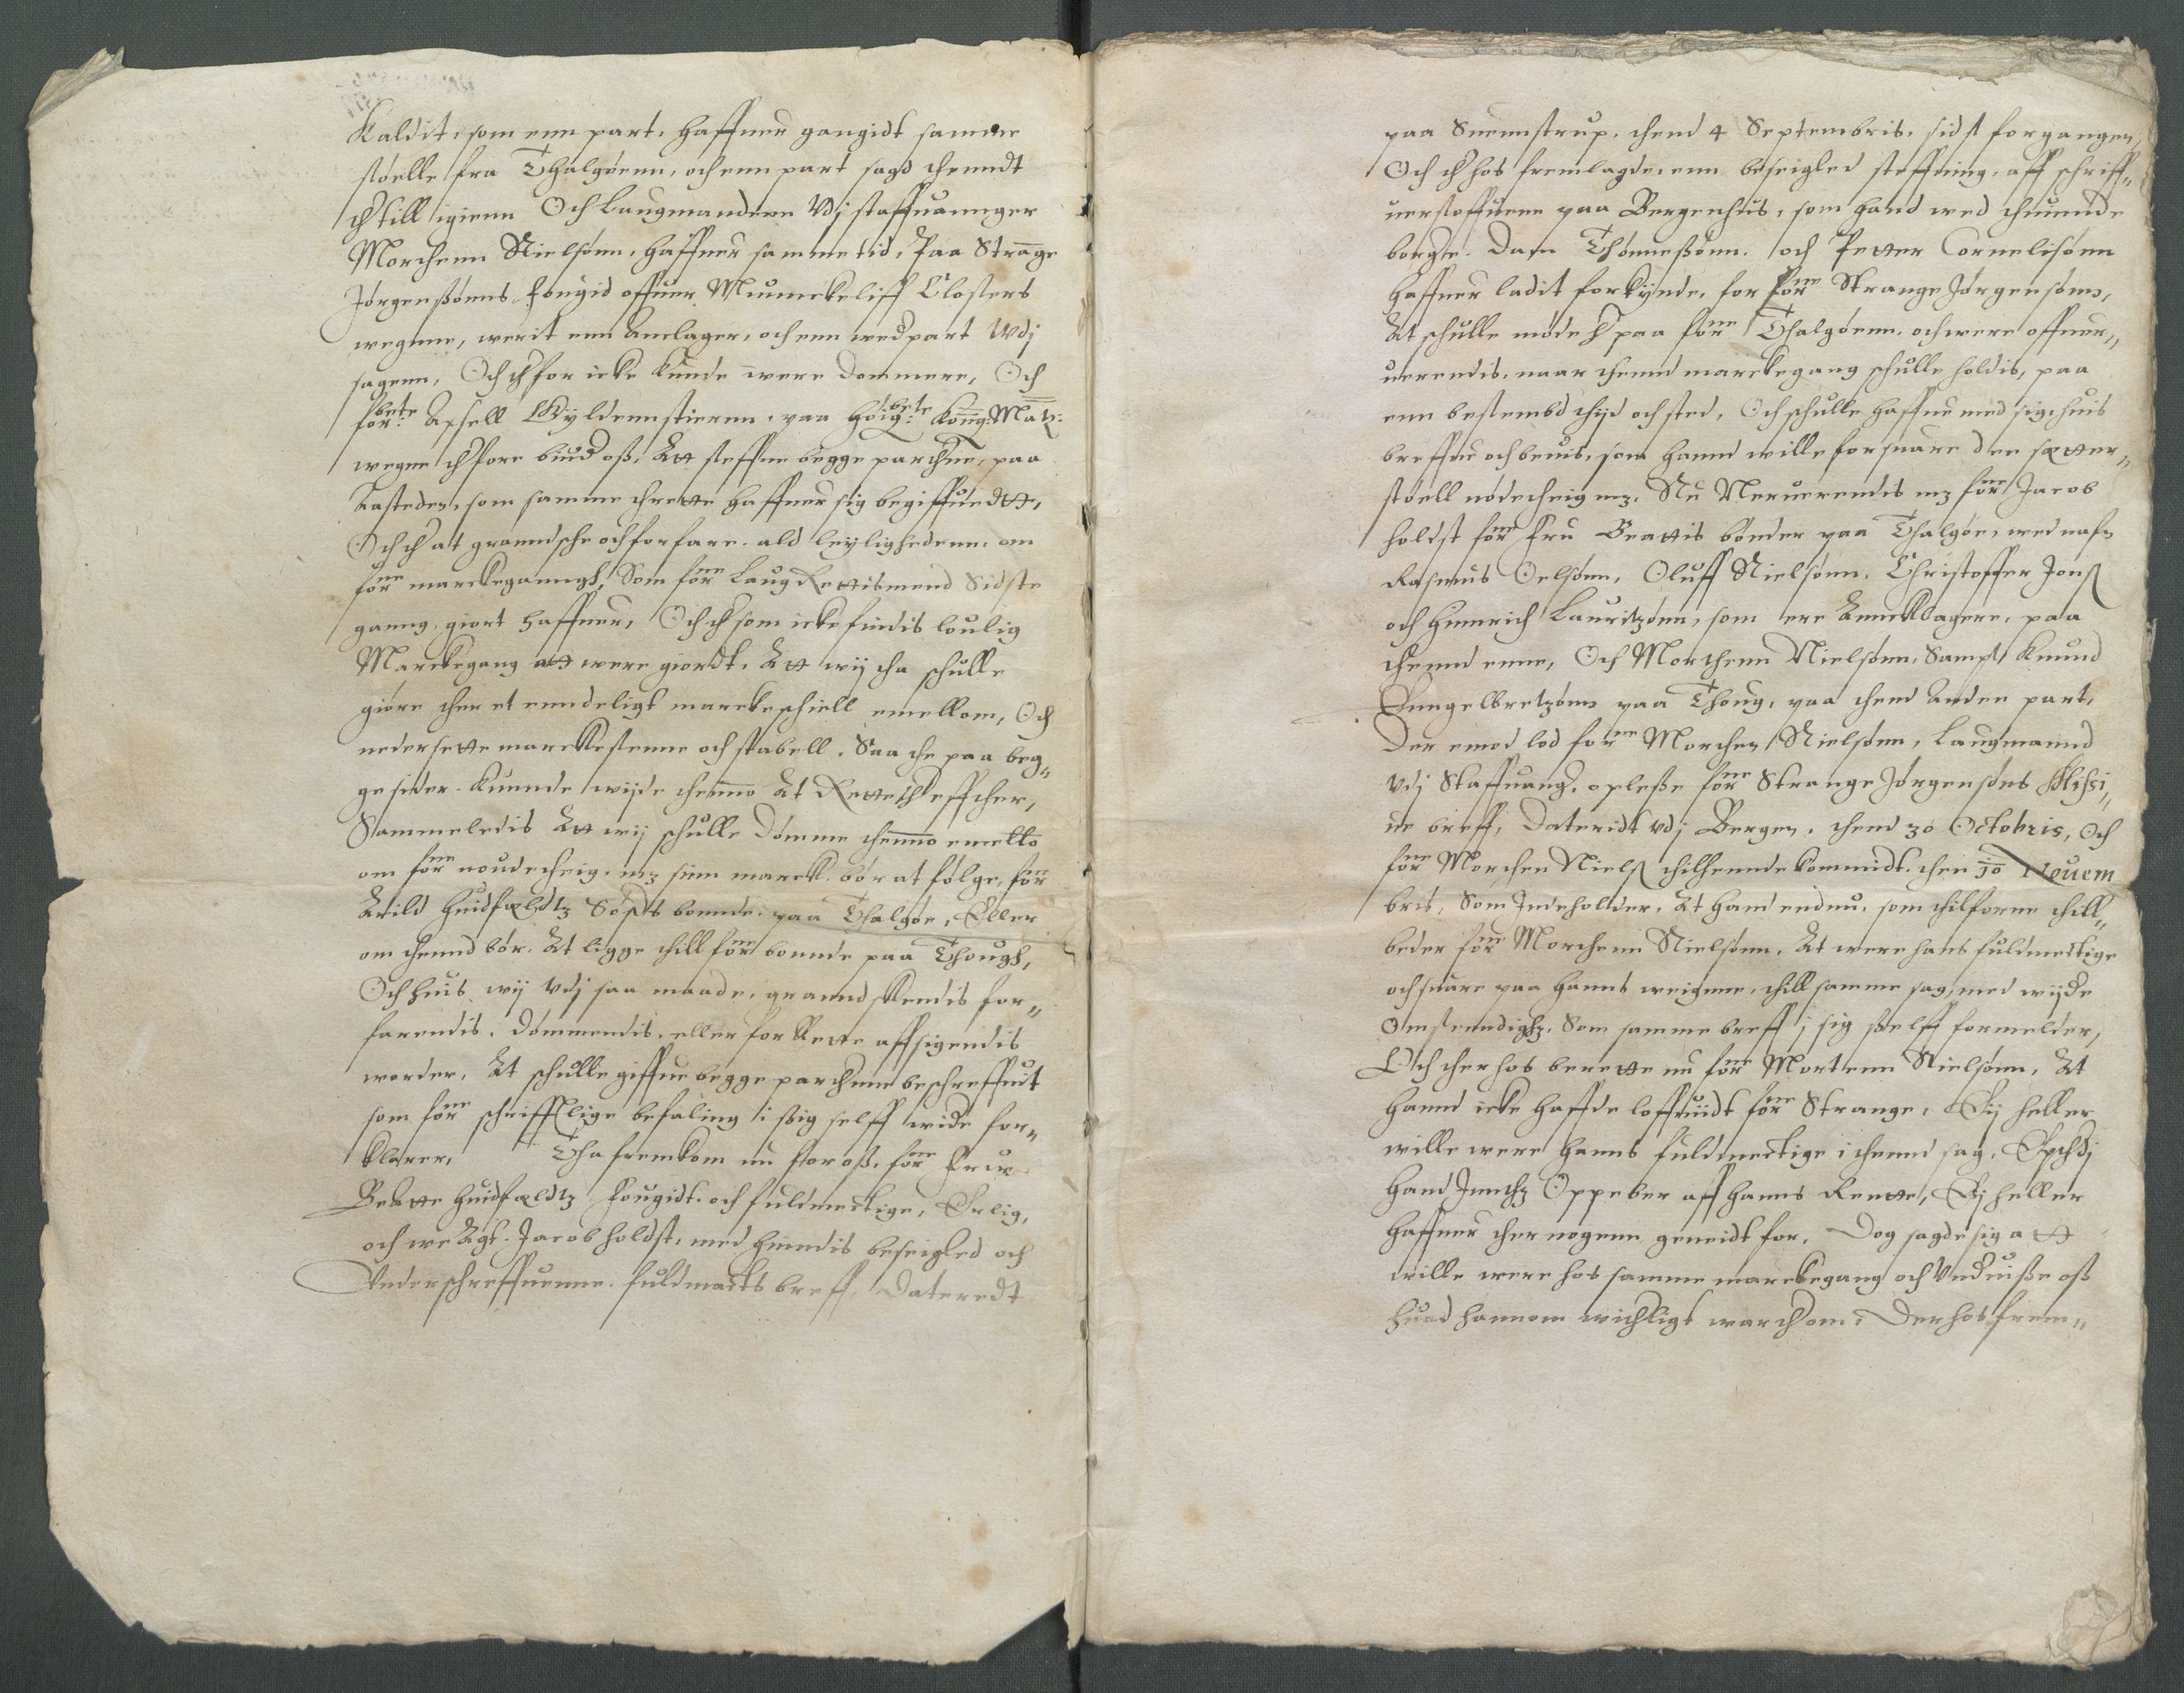 Kaldit, som enn part, haffuer gangidt samme
støelle fra Thalgøenn, och enn part sagd thenndt
ther till igienn Och Laugmandenn Vdj staffuannger
Morthenn Nielsønn, haffuer samme tid, Paa Strange
Jørgenßønns fougid offuer Munnckeliff Closters
wegnne, werit enn Annclager, och enn wedpart Vdj
sagenn, Och therfor icke kunde were dommere, Och
forbete: Axsell Gyldennstiernn, paa høigbete: Konng: Matz:
wegne therfore biud oß, Att steffne begge parthne, paa
Aastedenn, som samme thrette haffuer sig begiffuedtt,
Och ther at granndsche och forfare, ald leylighedenn, om
forne marckeganngh, Som forne LaugRettismend Sidste
ganng, giort haffuer, Och ther som icke findis louligt
Marckegang att were giordt, Att wij tha schulle
giøre ther et enndeligt marckeschiell emellom, Och
nedersette marckestenne och stabell. Saa the paa beg„
ge sider kunnde wijde thennom At Rette ther effther,
Sammeledis Att wij schulle Dømme thennom emellom
om forne noudetheig, mz sinn marck, bør at følge, forne
Arild huidfeldtz Søsters bonnde, paa Thalgøe, Eller
om thennd bør, At ligge thill forne bonnde paa Though,
Och huis wij Vdj saa maade, granndskendis for„
farendis, Dømmendis, eller for Rette affsigendis
worder, At schulle giffue begge partheune beschreffuit
som forne schrifftlige befaling i ßig selff wide for„
klarer, Tha fremkom nu for oß, forne Frue
Beatte huidfeldtz fougidt och fuldmectige, Erlig,
och weAgt. Jacob holdst, med hinndis beseigled och
Vnderschreffuenne fuldmackts breff, Dateredt
paa Suennstrup, thend 4 Septembris, sidst forgangen,
Och ther hos fremlagde, enn beseigled steffning, aff schriff„
uerstoffuenn paa Bergenhus, som hand wed thuennde
borgere. Dafn Thønneßønn, och Petter Cornelisønn
haffuer ladit forkynde, for forne Strange Jørgensønn,
At schulle møde her paa forne Thalgøenn, och were offuer„
uerendis, naar thennd marckegang schulle holdis, paa
enn bestembd thijd och sted, Och schulle haffue med sig, huis
breffue och beuis, som hannd wille forsuare den sætter„
støell nodetheig mz, Nu Neruerendis mz forne Jacob
holdst forne Fru Beattis bønder paa Thalgøe, wed nafn
Rasmus Oelsønn, Oluff Nielsønn, Christoffer Jonß
och Hinnrich Lauritzønn, som ere Annklagere, paa
thennd enne, Och Morthenn Nielsønn, Sampt Knund
Enngelbretzønn paa Thoug, paa thend Anden part,
Der emod lod forne Morthen Nielsønn, Laugmannd
Vdj Staffuang, opleße forne Strange Jørgensøns Missi„
ue breff, Dateridt Vdj Bergen, thend 30 Octobris, Och
forne Morthen Nielß thilhennde kommidt, then 10 Nouem
bris, Som Indeholder, At hand endnu, som thilforne thill„
beder forne Morthenn Nielsønn, At were hans fuldmectige
och suare paa hanns weignne, thill samme sag, med wijde
Omstenndighz, Som samme breff j sig ßelff formelder,
Och ther hos berette nu forne Mortenn Nielsønn, At
hannd icke haffde loffuidt forne Strange, Ey heller
wille were hanns fuldmectige i thennd sag, Epthj
hand Inthz Oppeber aff hanns Rentte, Ey heller
haffuer ther nogenn geneidt for, Dog sagde sig att
wille were hos samme marckegang och Vnduiße oß
huad hannom wichligt war ther om, Der hos frem„